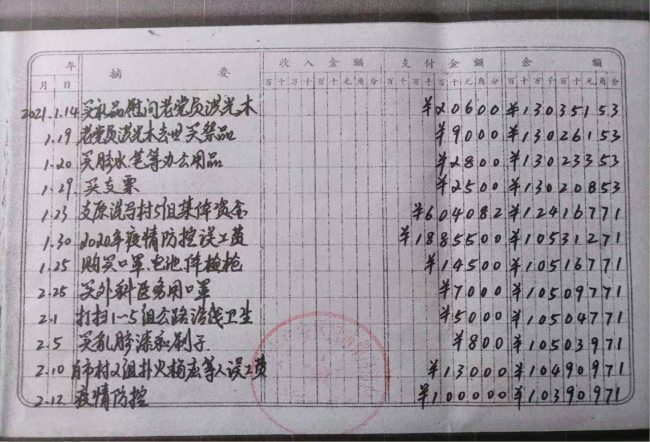 年 摘 要 收入金额 支付金额 余 额
月 日 百十万千百十元角分 百十万千百十元角分 百十万千百十元角分
2021.1.14 买礼品慰问老党员洪光木 ¥20600 ¥13035153
1.19 老党员洪光木去世买祭品 ¥9000 ¥13026153
1.20 买胶水.笔等办公用品 ¥2800 ¥13023353
1.29 买支票 ¥2500 ¥13020853
1.23 支原混马村5组集体资金 ¥604082 ¥12416771
1.30 2020年疫情防控误工费 ¥1885500 ¥10531271
1.25 购买口罩.电池.体检枪 ¥14500 ¥10516771
2.25 买外科医务用口罩 ¥7000 ¥10509771
2.1 打扫1-5组公路沿线卫生 ¥5000 ¥10504771
2.5 买乳胶漆和刷子 ¥800 ¥10503971
2.10 村2组扑火杨宏等人误工费 ¥13000 ¥10490971
2.12 疫情防控 ¥100000 ¥10390971